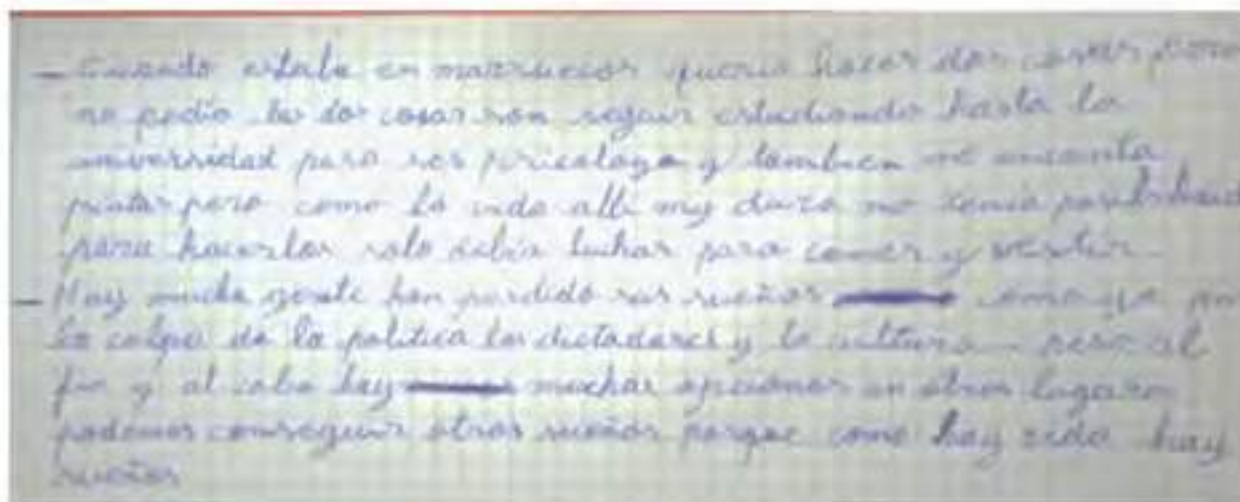 – Cuando estaba en marruecos queria hacer dos cosas pero
no podia las dos cosas son seguir estudiando hasta la
universidad para ser psicologa y tambien me encanta
pintar pero como la vida alli muy dura no tenia posibilidad
para hacerlas solo debia luchar para comer y vestir
– Hay mucha gente han perdido sus sueños como yo por
la culpa de la politica los dictadores y la cultura pero al
fin y al cabo hay muchas opciones en otros lugares
podemos conseguir otros sueños porque como hay vida hay
sueños